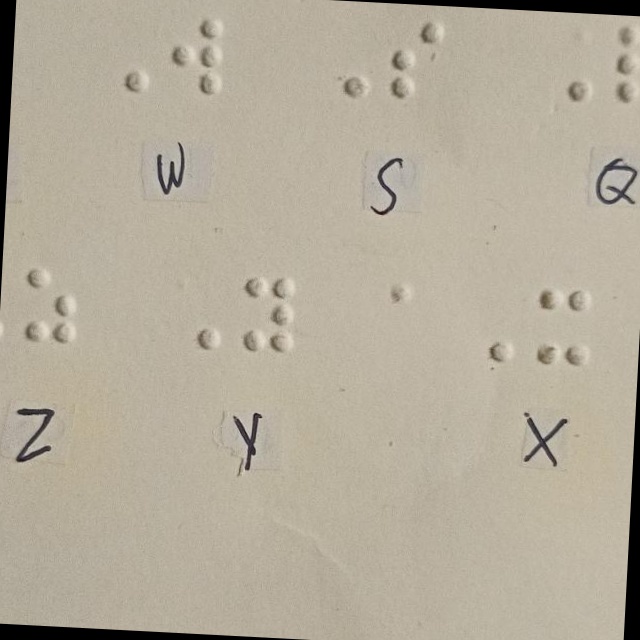 W S Q
Z Y X